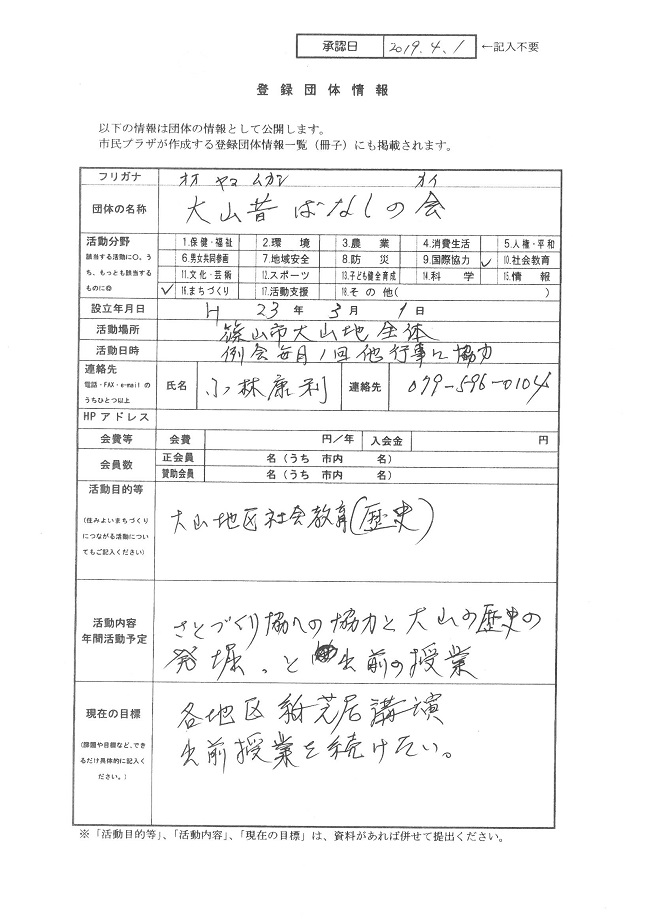 承認日 2019.4.1 ←記入不要
登録団体情報
以下の情報は団体の情報として公開します。
市民プラザが作成する登録団体情報一覧(冊子)にも掲載されます。
フリガナ オオ ヤマ ムカシ カイ
団体の名称 大山昔ばなしの会
活動分野
該当する活動に○、う
ち、もっとも該当する
ものに◎
1.保健・福祉 2.環境 3.農業 4.消費生活 5.人権・平和
6.男女共同参画 7.地域安全 8.防災 9.国際協力 ✓ 10.社会教育
11.文化・芸術 12.スポーツ 13.子ども健全育成 14.科学 15.情報
✓ 16.まちづくり 17.活動支援 18.その他( )
設立年月日 H 23 年 3 月 1 日
活動場所 篠山市大山地全体
活動日時 例会毎月1回他行事に協力
連絡先
電話・FAX・e-mailの
うちひとつ以上
氏名 小林康利 連絡先 079-596-0104
HPアドレス
会費等 会費 円/年 入会金 円
会員数 正会員 名(うち 市内 名)
賛助会員 名(うち 市内 名)
活動目的等
(住みよいまちづくり
につながる活動につい
てもご記入ください)
大山地区社会教育(歴史)
活動内容
年間活動予定
さとづくり協への協力と大山の歴史の
発堀、と 出前の授業
現在の目標
(課題や目標など、でき
るだけ具体的に記入く
ださい。)
各地区紙芝居講演
出前授業を続けたい。
※「活動目的等」、「活動内容」、「現在の目標」は、資料があれば併せて提出ください。